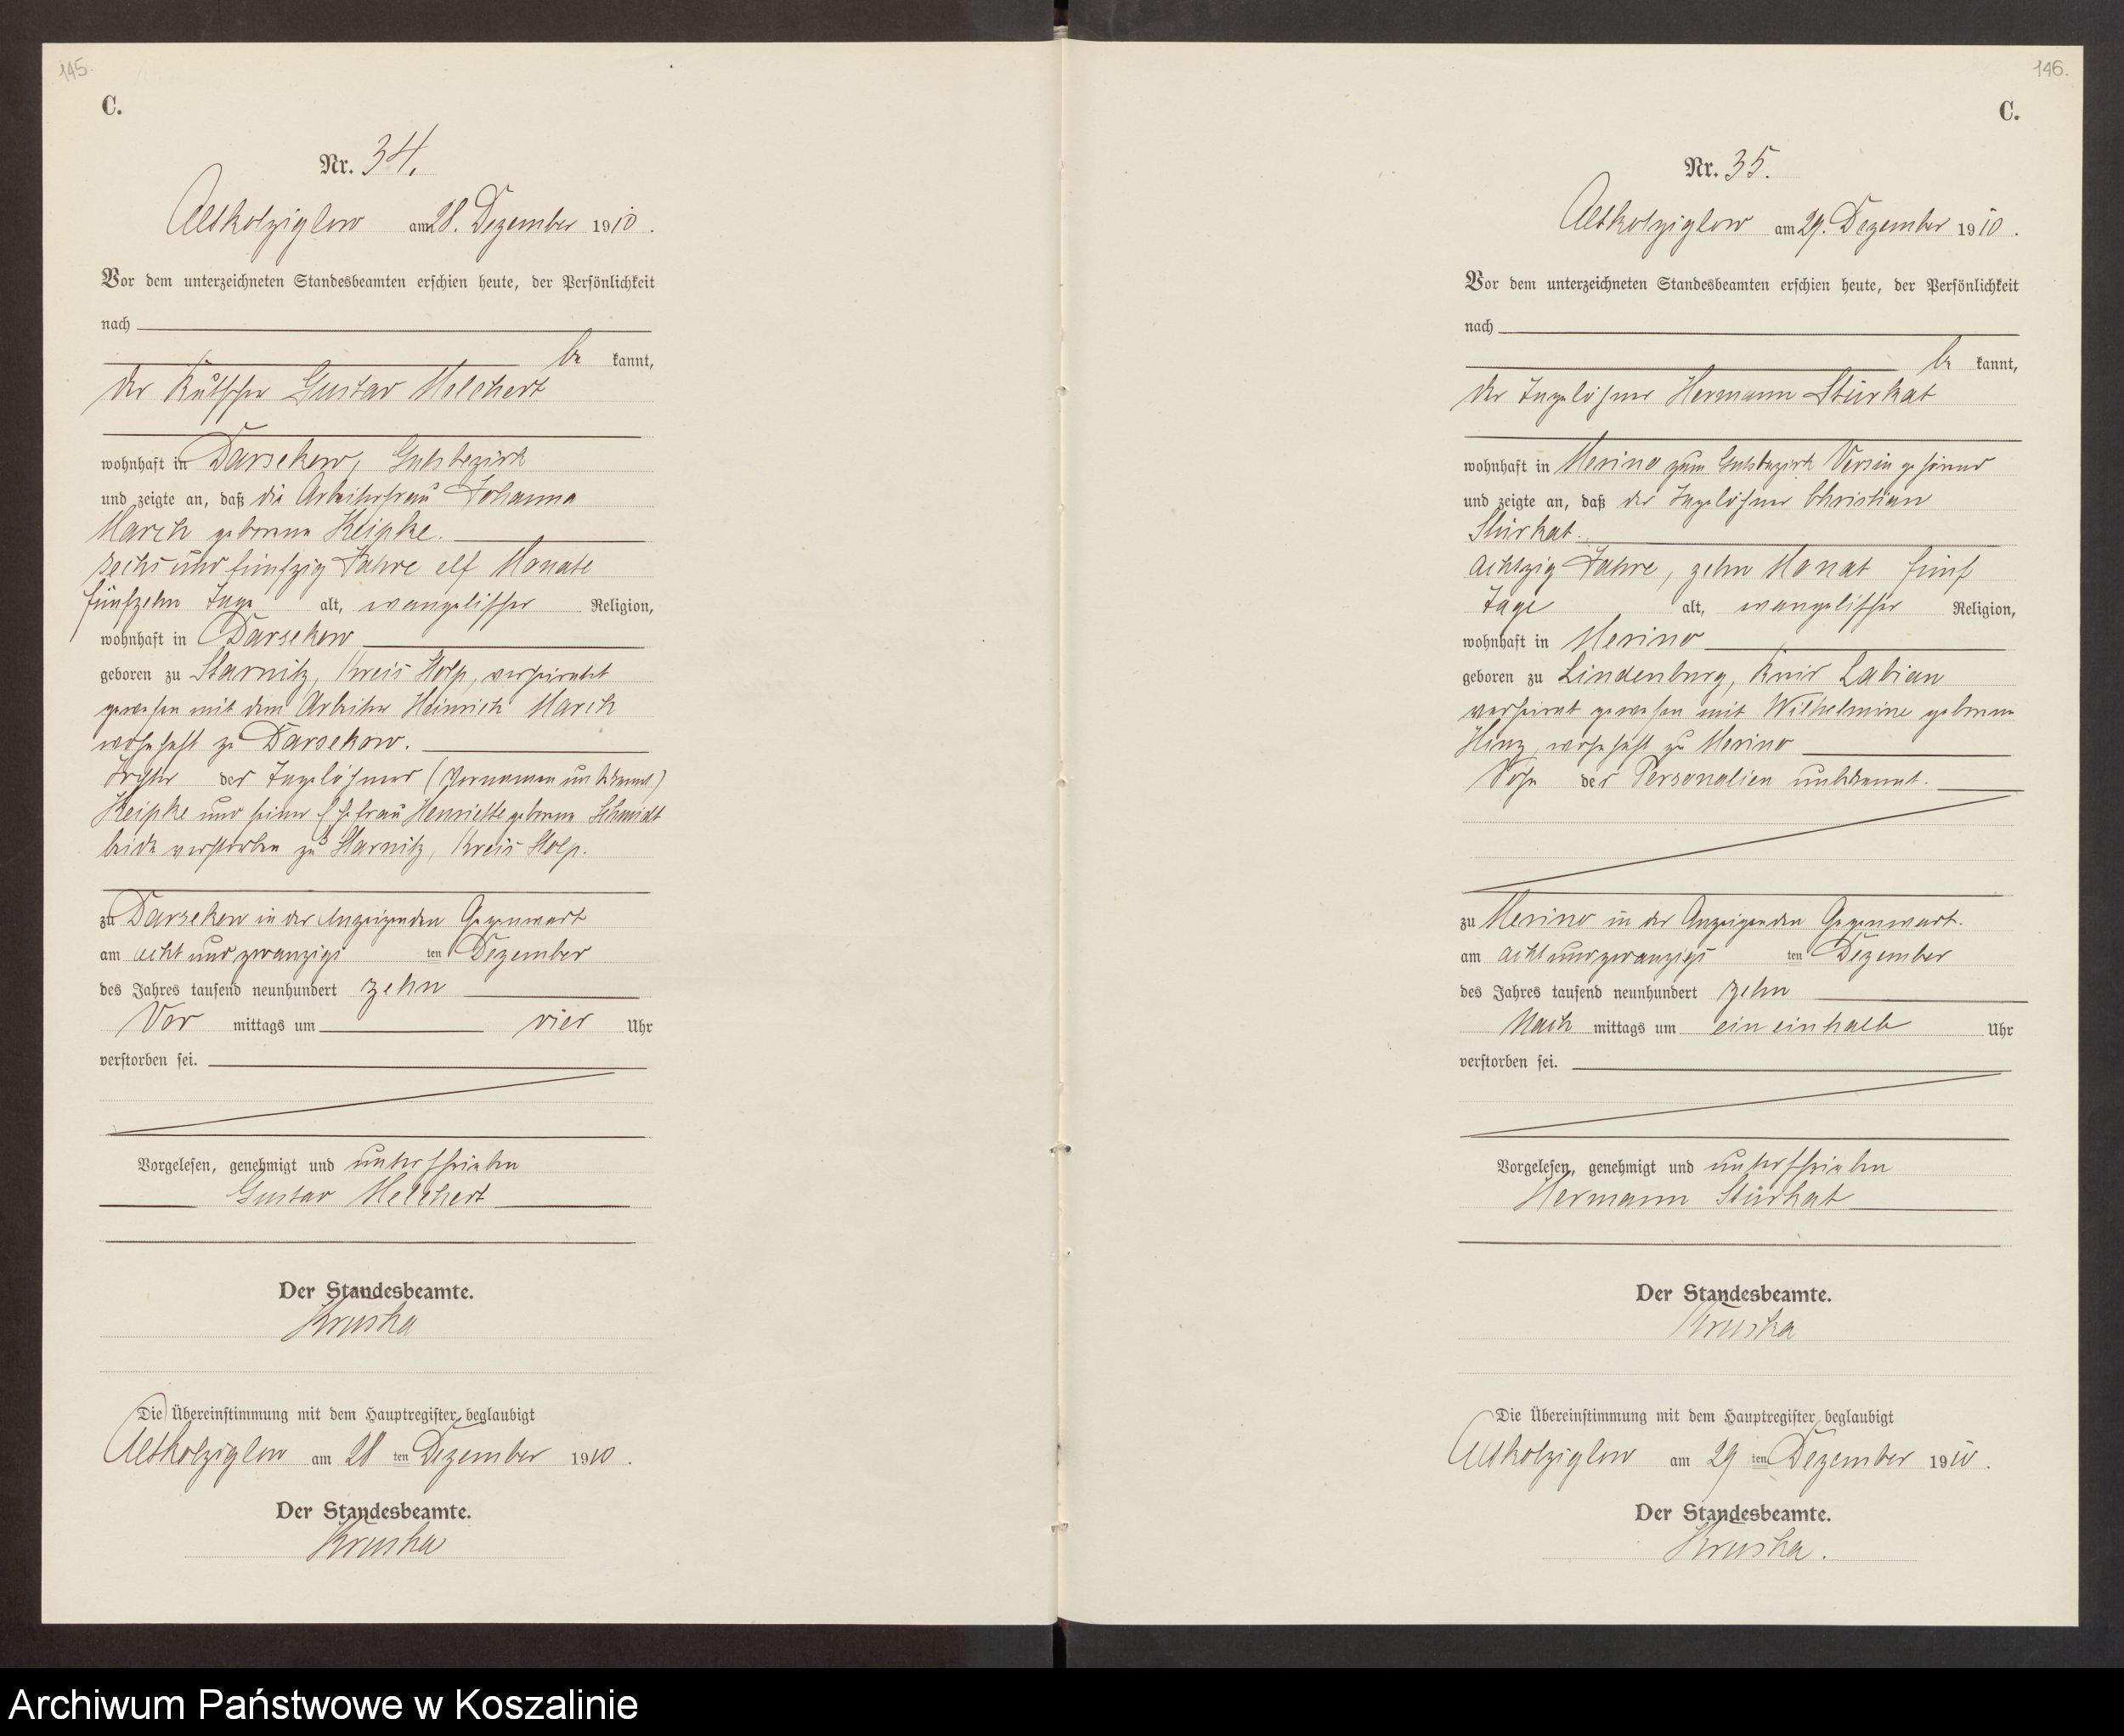 145.
C.
Nr. 34.
Altkolziglow am 28. Dezember 1910.
Vor dem unterzeichneten Standesbeamten erschien heute, der Persönlichkeit
nach
be kannt,
der Kutscher Gustav Melchert
wohnhaft in Darsekow, Gutsbezirk
und zeigte an, daß die Arbeiterfrau Johanna
March geborene Keipke.
sechs und fünfzig Jahre elf Monate
fünfzehn Tage alt, evangelischer Religion,
wohnhaft in Darsekow
geboren zu Starnitz, Kreis Stolp, verheiratet
gewesen mit dem Arbeiter Heinrich March
wohnhaft zu Darsekow.
Tochter des Tagelöhners (Vornamen unbekannt)
Keipke und seiner Ehefrau Henriette geborene Schmidt
beide verstorben zu Starnitz, Kreis Stolp.
zu Darsekow in des Anzeigenden Gegenwart
am acht und zwanzigsten Dezember
des Jahres tausend neunhundert zehn
Vor mittags um vier Uhr
verstorben sei.
Vorgelesen, genehmigt und unterschrieben
Gustav Melchert
Der Standesbeamte.
Kruska
Die Übereinstimmung mit dem Hauptregister beglaubigt
Altkolziglow am 28 ten Dezember 1910.
Der Standesbeamte.
Kruska
146.
C.
Nr. 35.
Altkolziglow am 29. Dezember 1910.
Vor dem unterzeichneten Standesbeamten erschien heute, der Persönlichkeit
nach
be kannt,
der Tagelöhner Hermann Stürkat
wohnhaft in Merino zum Gutsbezirk Versin gehörend
und zeigte an, daß der Tagelöhner Christian
Stürkat.
achtzig Jahre, zehn Monat fünf
Tage alt, evangelischer Religion,
wohnhaft in Merino
geboren zu Lindenburg, Kreis Labiau
verheirat gewesen mit Wilhelmine geborene
Hinz, wohnhaft zu Merino
Sohn des Personalien unbekannt.
zu Merino in des Anzeigenden Gegenwart.
am acht und zwanzigsten Dezember
des Jahres tausend neunhundert zehn
Nach mittags um ein einhalb Uhr
verstorben sei.
Vorgelesen, genehmigt und unterschrieben
Hermann Stürkat
Der Standesbeamte.
Kruska
Die Übereinstimmung mit dem Hauptregister beglaubigt
Altkolziglow am 29 ten Dezember 1910.
Der Standesbeamte.
Kruska.
Archiwum Państwowe w Koszalinie